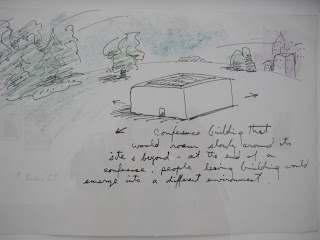 Conference building that
would roam slowly around its
site & beyond - at the end of a
conference, people leaving building would
emerge into a different environment.